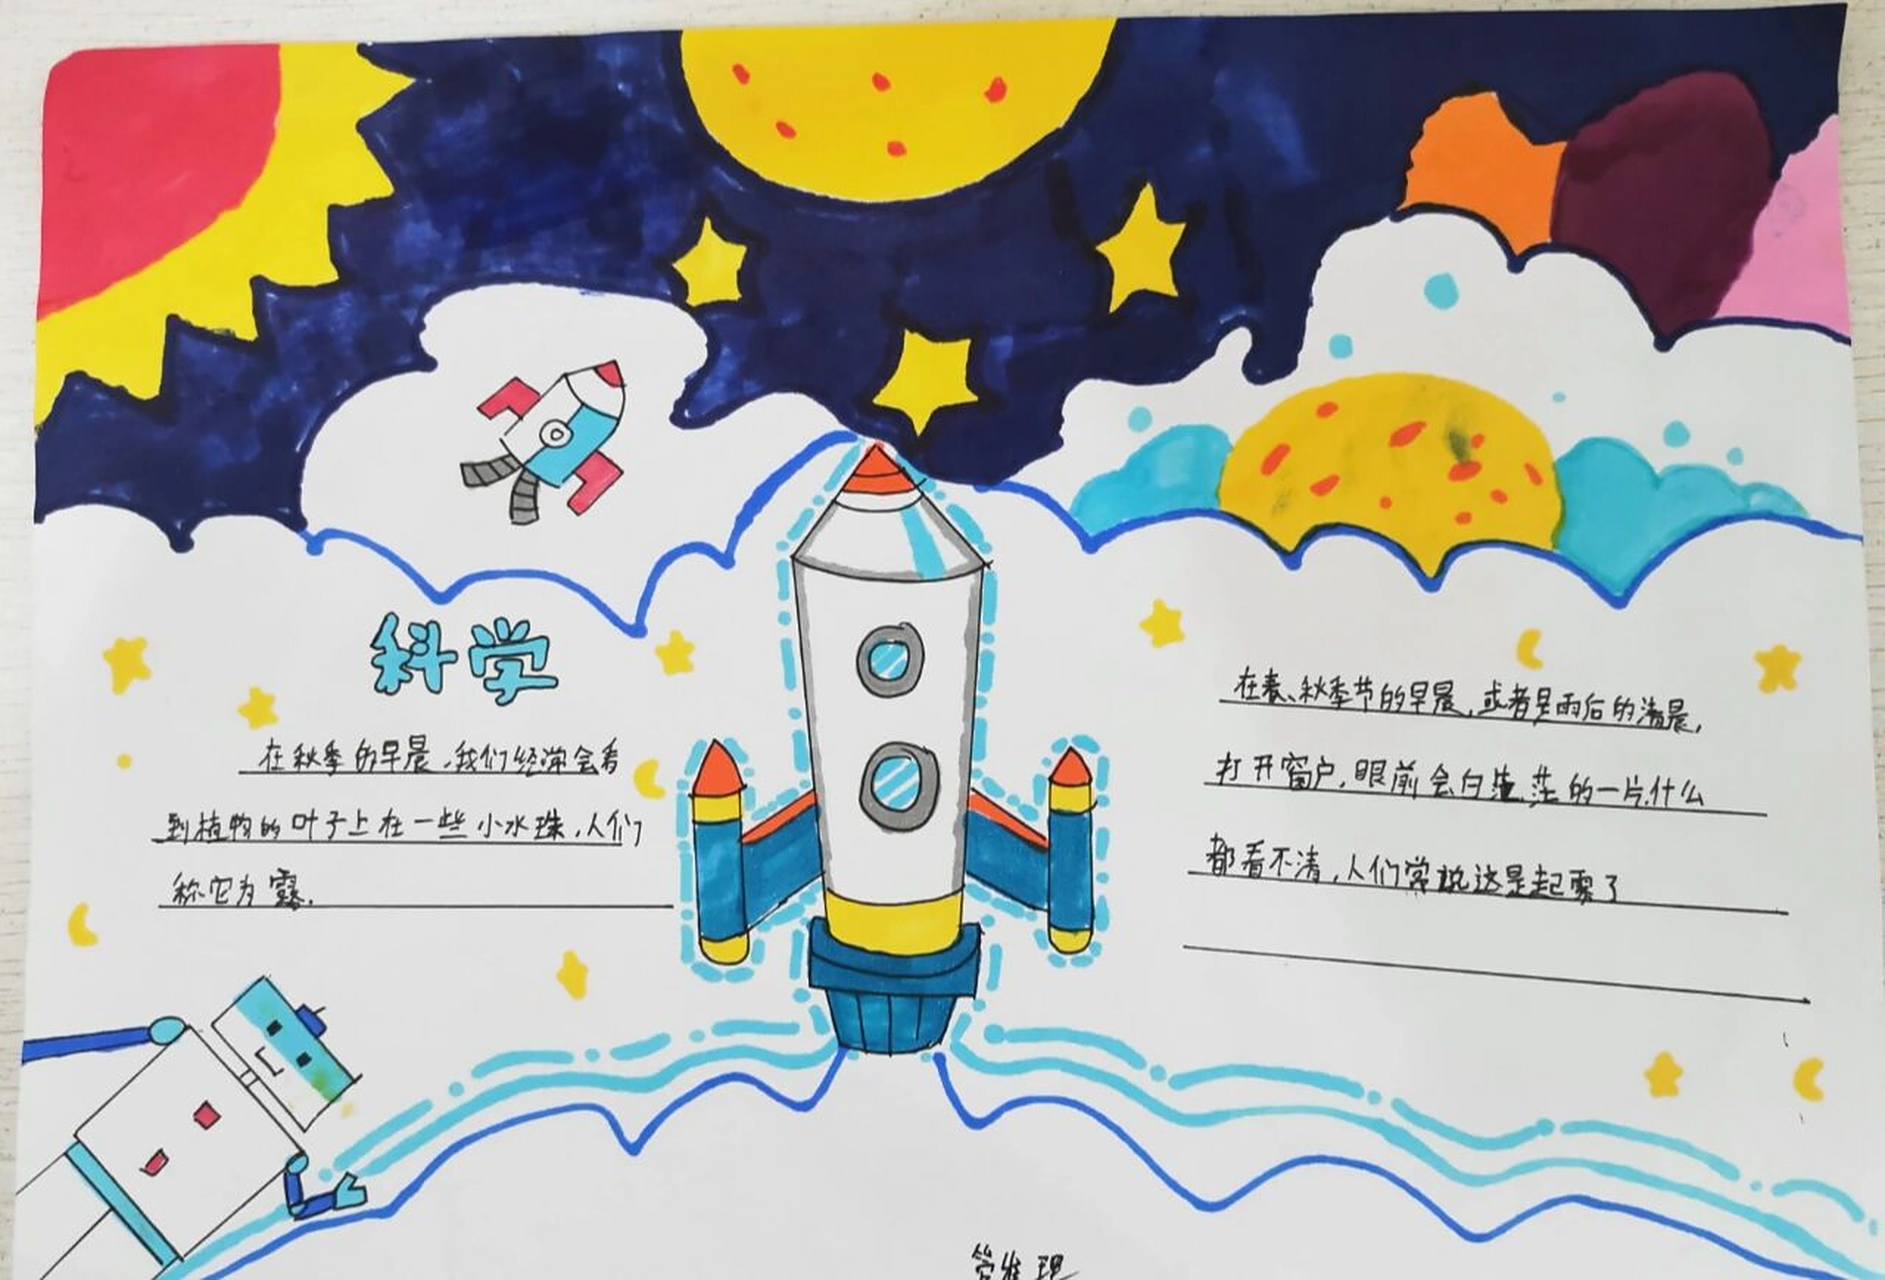 科学
在秋季的早晨,我们经常会看
到植物的叶子上在一些小水珠,人们
称它为露.
在春、秋季节的早晨,或者是雨后的清晨,
打开窗户,眼前会白茫茫的一片什么
都看不清,人们常说这是起雾了